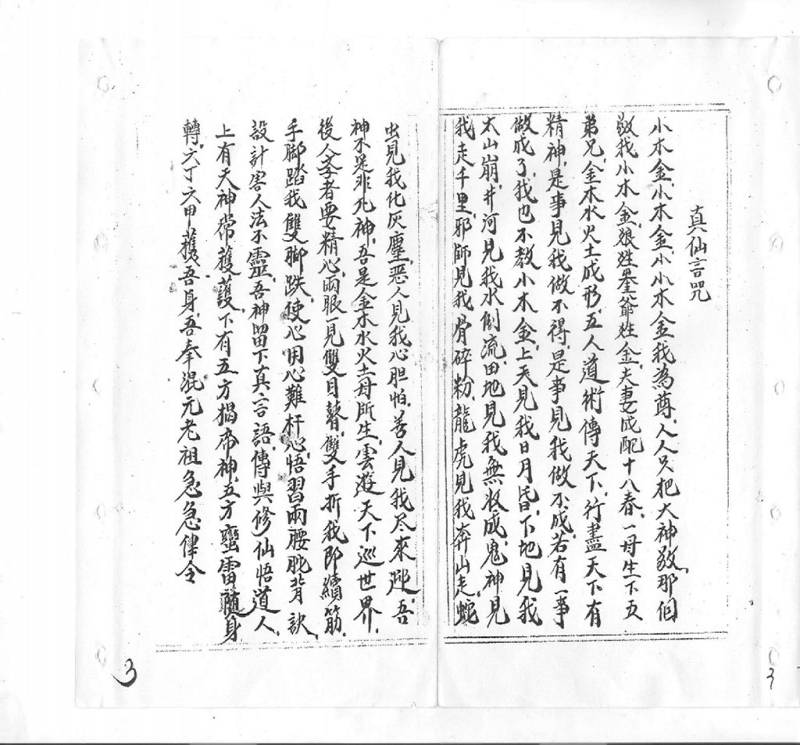 真仙言咒
小木金，小木金，小小木金我為尊，人人只把大神敬，那個
敬我小木金，娘姓姜爺姓金，夫妻成配十八春，一母生下五
弟兄，金木水火土成形，五人道術傳天下，行盡天下有
精神，是事見我做不得，是事見我做不成，若有一事
做成了，我也不教小木金，上天見我日月昏，下地見我
太山崩，井河見我水倒流，田地見我無收成，鬼神見
我走千里，邪師見我骨碎粉，龍虎見我奔山走，蛇
虫見我化灰塵，惡人見我心胆怕，善人見我尽來迎，吾
神不是非凡神，吾是金木水火土母所生，雲遊天下巡世界，
後人
者要精心，兩眼一見雙目瞽，雙手折我即續筋，
手腳踏我雙腳跌，使心用心難
心，悟習兩腰駝背
設計害人法不靈，吾神留下真言語，傳與修仙悟道人，
上有天神常護護，下有五方揭帝神，五方蠻雷隨身
轉，六丁六甲護吾身，吾奉混元老祖急急律令
3
3